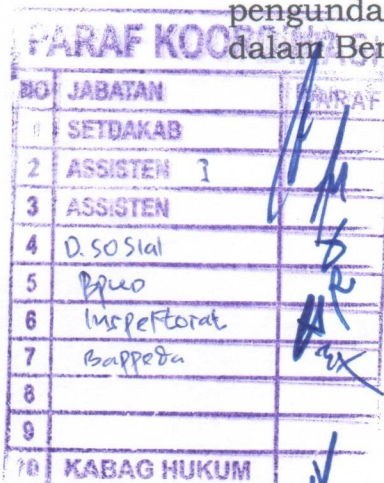 pengunda
dalam Ber
PARAF KOORDINASI
NO JABATAN PARAF
1 SETDAKAB
2 ASSISTEN I
3 ASSISTEN
4 D. SOSIAl
5
6 Inspektorat
7 Bappeda
8
9
10 KABAG HUKUM